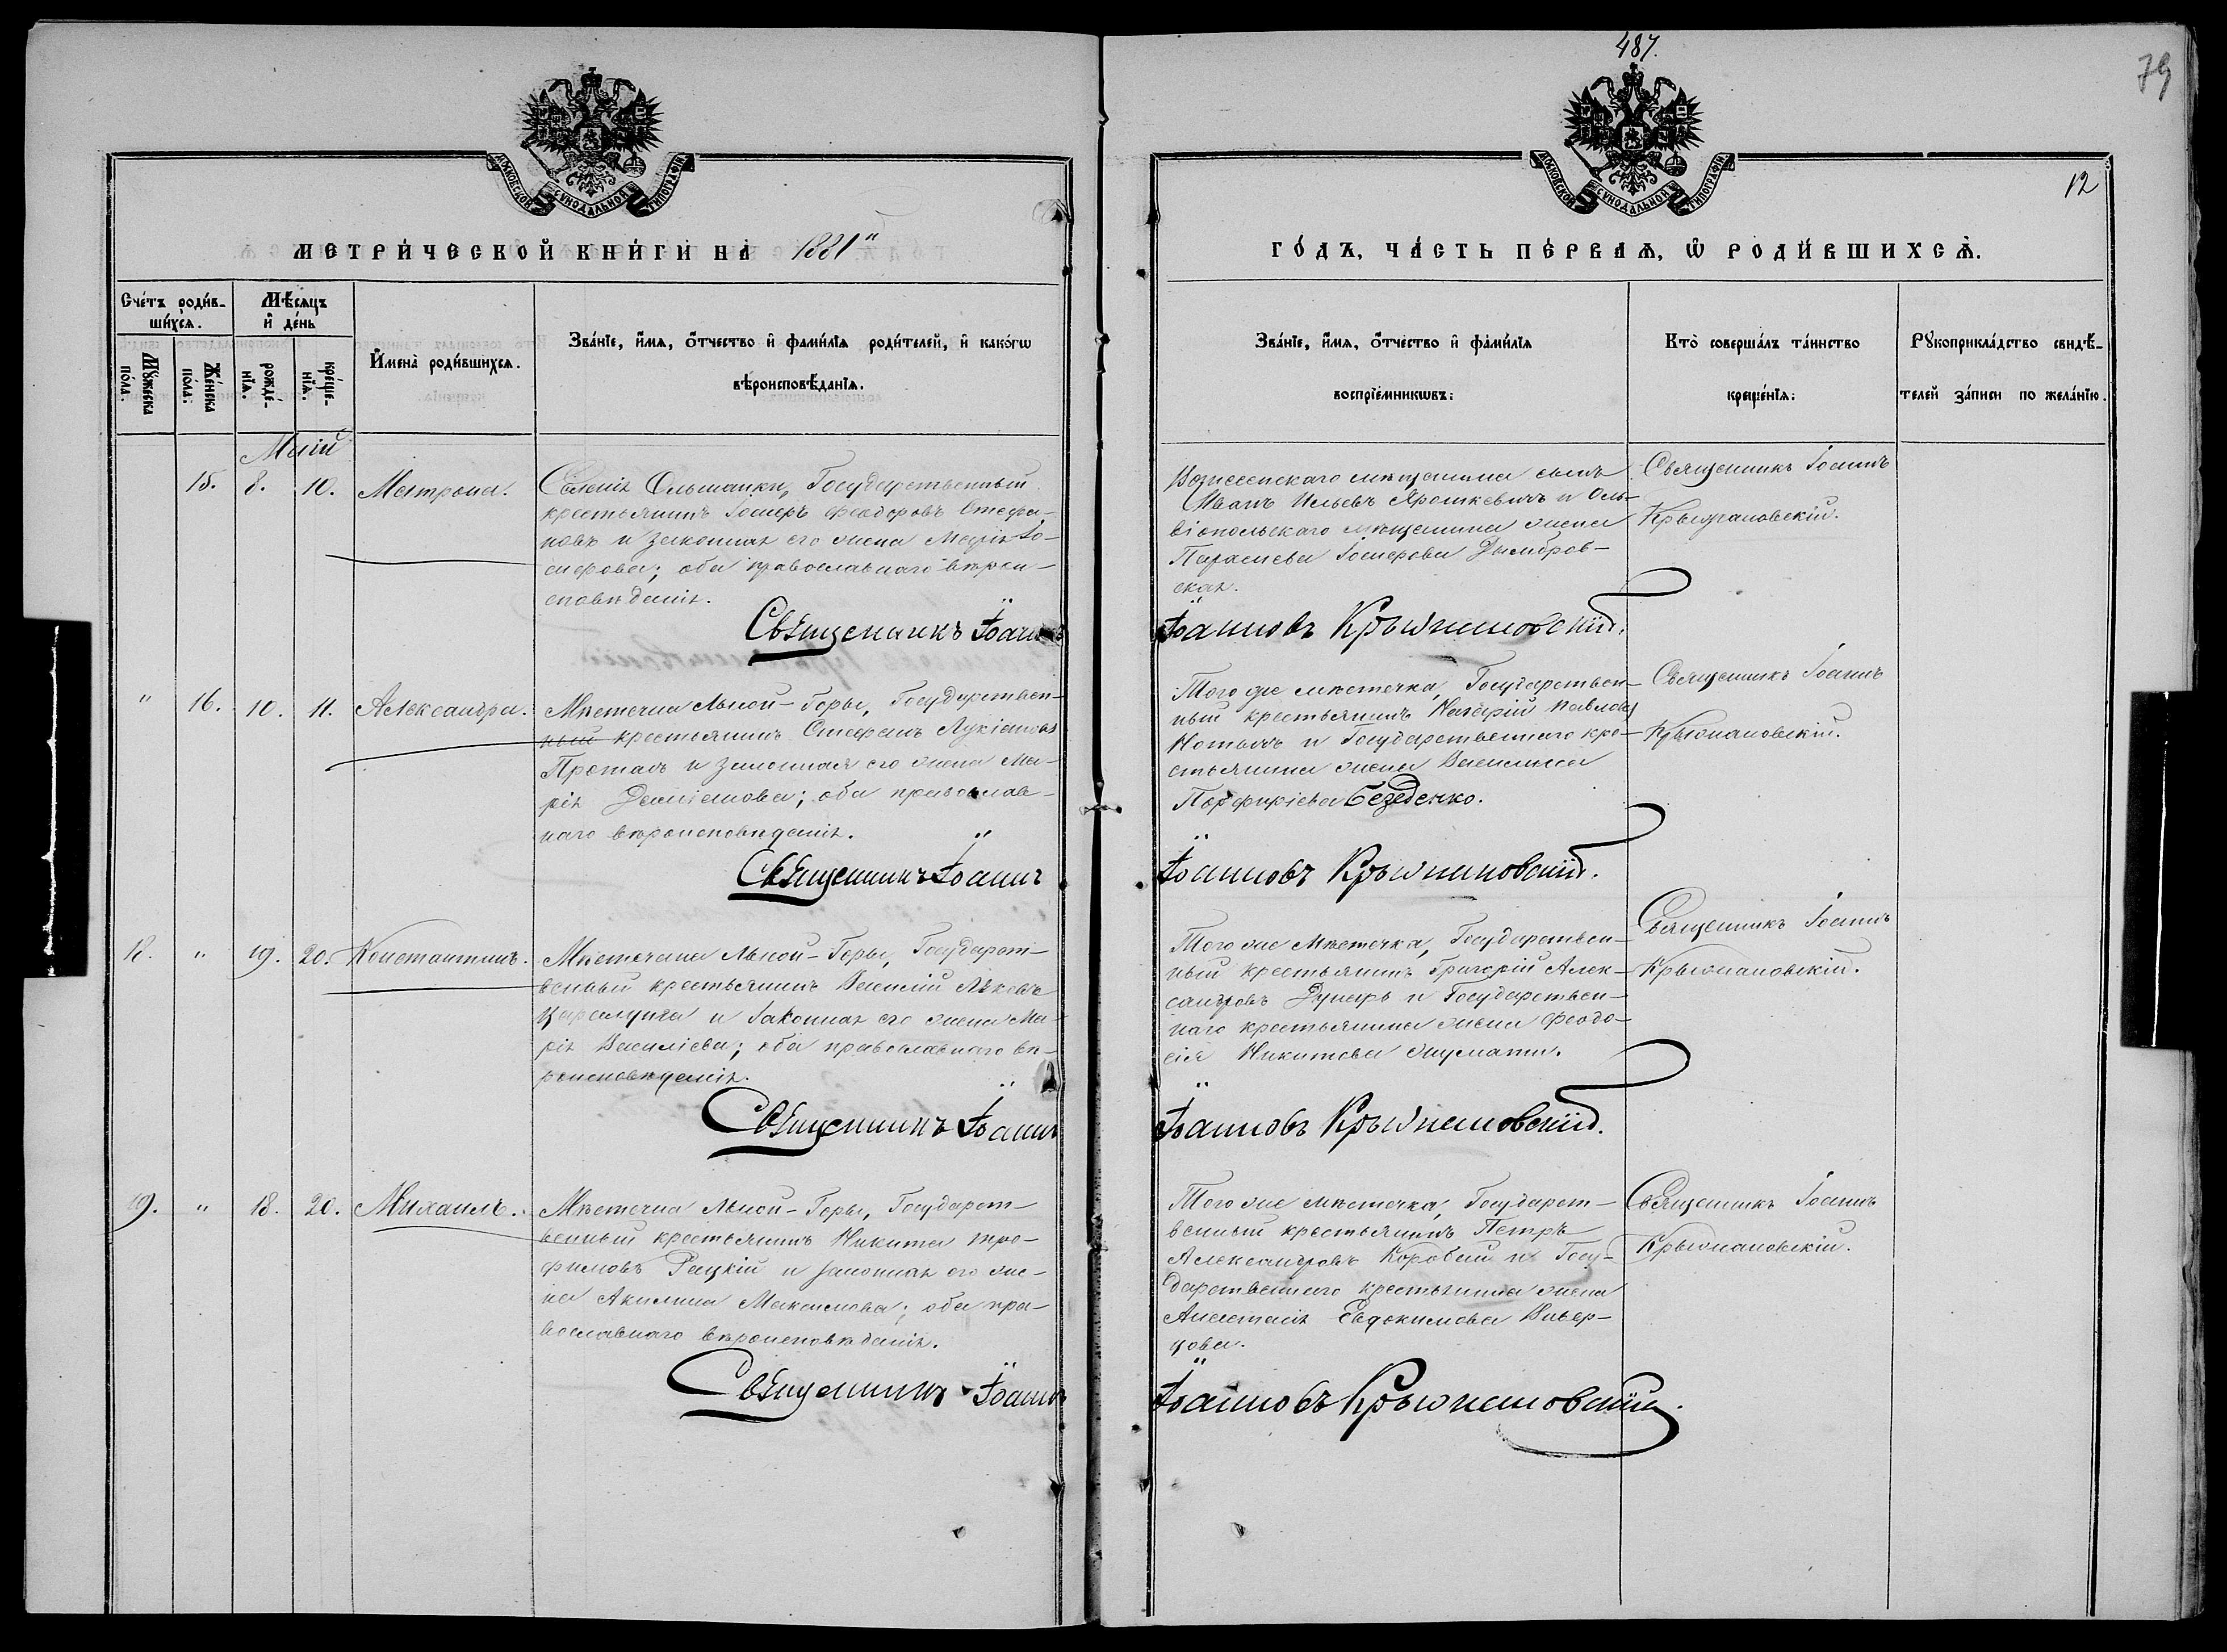 487.
79
12
МОСКОВСКОЙ СѴНОДАЛЬНОЙ ТИПОГРАФІИ
МОСКОВСКОЙ СѴНОДАЛЬНОЙ ТИПОГРАФІИ
МЕТРИ́ЧЕСКОЙ КНИ́ГИ НА̀ 1881"
ГО́ДЪ, ЧА́СТЬ ПЕ́РВАЯ, Ѡ РОДИ́ВШИХСЯ.
Сче́тъ роди́в-
ши́хся.
Мѣ́сяцъ
и де́нь
Му́жеска по́ла.
Же́нска по́ла.
рожде́-
нїя.
креще́-
нїя.
Имена̀ роди́вшихся.
Зва́нїе, имя, о́тчество и фами́лїя роди́телей, и како́гѡ
вѣроисповѣ́данїя.
Зва́нїе, имя, о́тчество и фами́лїя
воспрїе́мникѡвъ:
Кто̀ соверша́лъ та́инство
креще́нїя:
Рꙋкоприкла́дство свидѣ́-
телей за́писи по жела́нїю.
Май
15. 8. 10. Матрона.
Селенія Ольшанки, Государственный
крестьянинъ Іосифъ Феодоровъ Стефа-
новъ и законная его жена Марія Іо-
сифова; оба православнаго вѣрои-
сповѣданія.
Вознесенскаго мѣщанина сынъ
Иванъ Ильевъ Ярошкевичъ и Оль-
віопольскаго мѣщанина жена
Параскева Іосифова Домбров-
ская.
Священникъ Іоаннъ
Крыжановскій.
Священникъ Іоаннъ
Іоанновъ Крыжановскій.
" 16. 10. 11. Александра.
Мѣстечка Лысой-Горы, Государствен-
ный крестьянинъ Стефанъ Лукіановъ
и законная его жена Ма-
рія Даміанова; оба православ-
наго вѣроисповѣданія.
Того же мѣстечка, Государствен-
ный крестьянинъ Назарій Павловъ
и Государственнаго кре-
стьянина жена Василиса
Порфиріева Безеденко.
Священникъ Іоаннъ
Крыжановскій.
Священникъ Іоаннъ
Іоанновъ Крыжановскій.
18. " 19. 20. Константинъ.
Мѣстечка Лысой-Горы, Государст-
венный крестьянинъ Василій
и законная его жена Ма-
рія Василіева; оба православнаго вѣ-
роисповѣданія.
Того же мѣстечка, Государствен-
ный крестьянинъ Григорій Алек-
сандровъ и Государствен-
наго крестьянина жена Феодо-
сія Никитова
Священникъ Іоаннъ
Крыжановскій.
Священникъ Іоаннъ
Іоанновъ Крыжановскій.
19. " 18. 20. Михаилъ.
Мѣстечка Лысой-Горы, Государст-
венный крестьянинъ Никита Тро-
фимовъ Рацкій и законная его же-
на Акилина Максимова; оба пра-
вославнаго вѣроисповѣданія.
Того же мѣстечка, Государст-
венный крестьянинъ Петръ
Александровъ и Госу-
дарственнаго крестьянина жена
Анастасія Евдокимова
Священникъ Іоаннъ
Крыжановскій.
Священникъ Іоаннъ
Іоанновъ Крыжановскій.